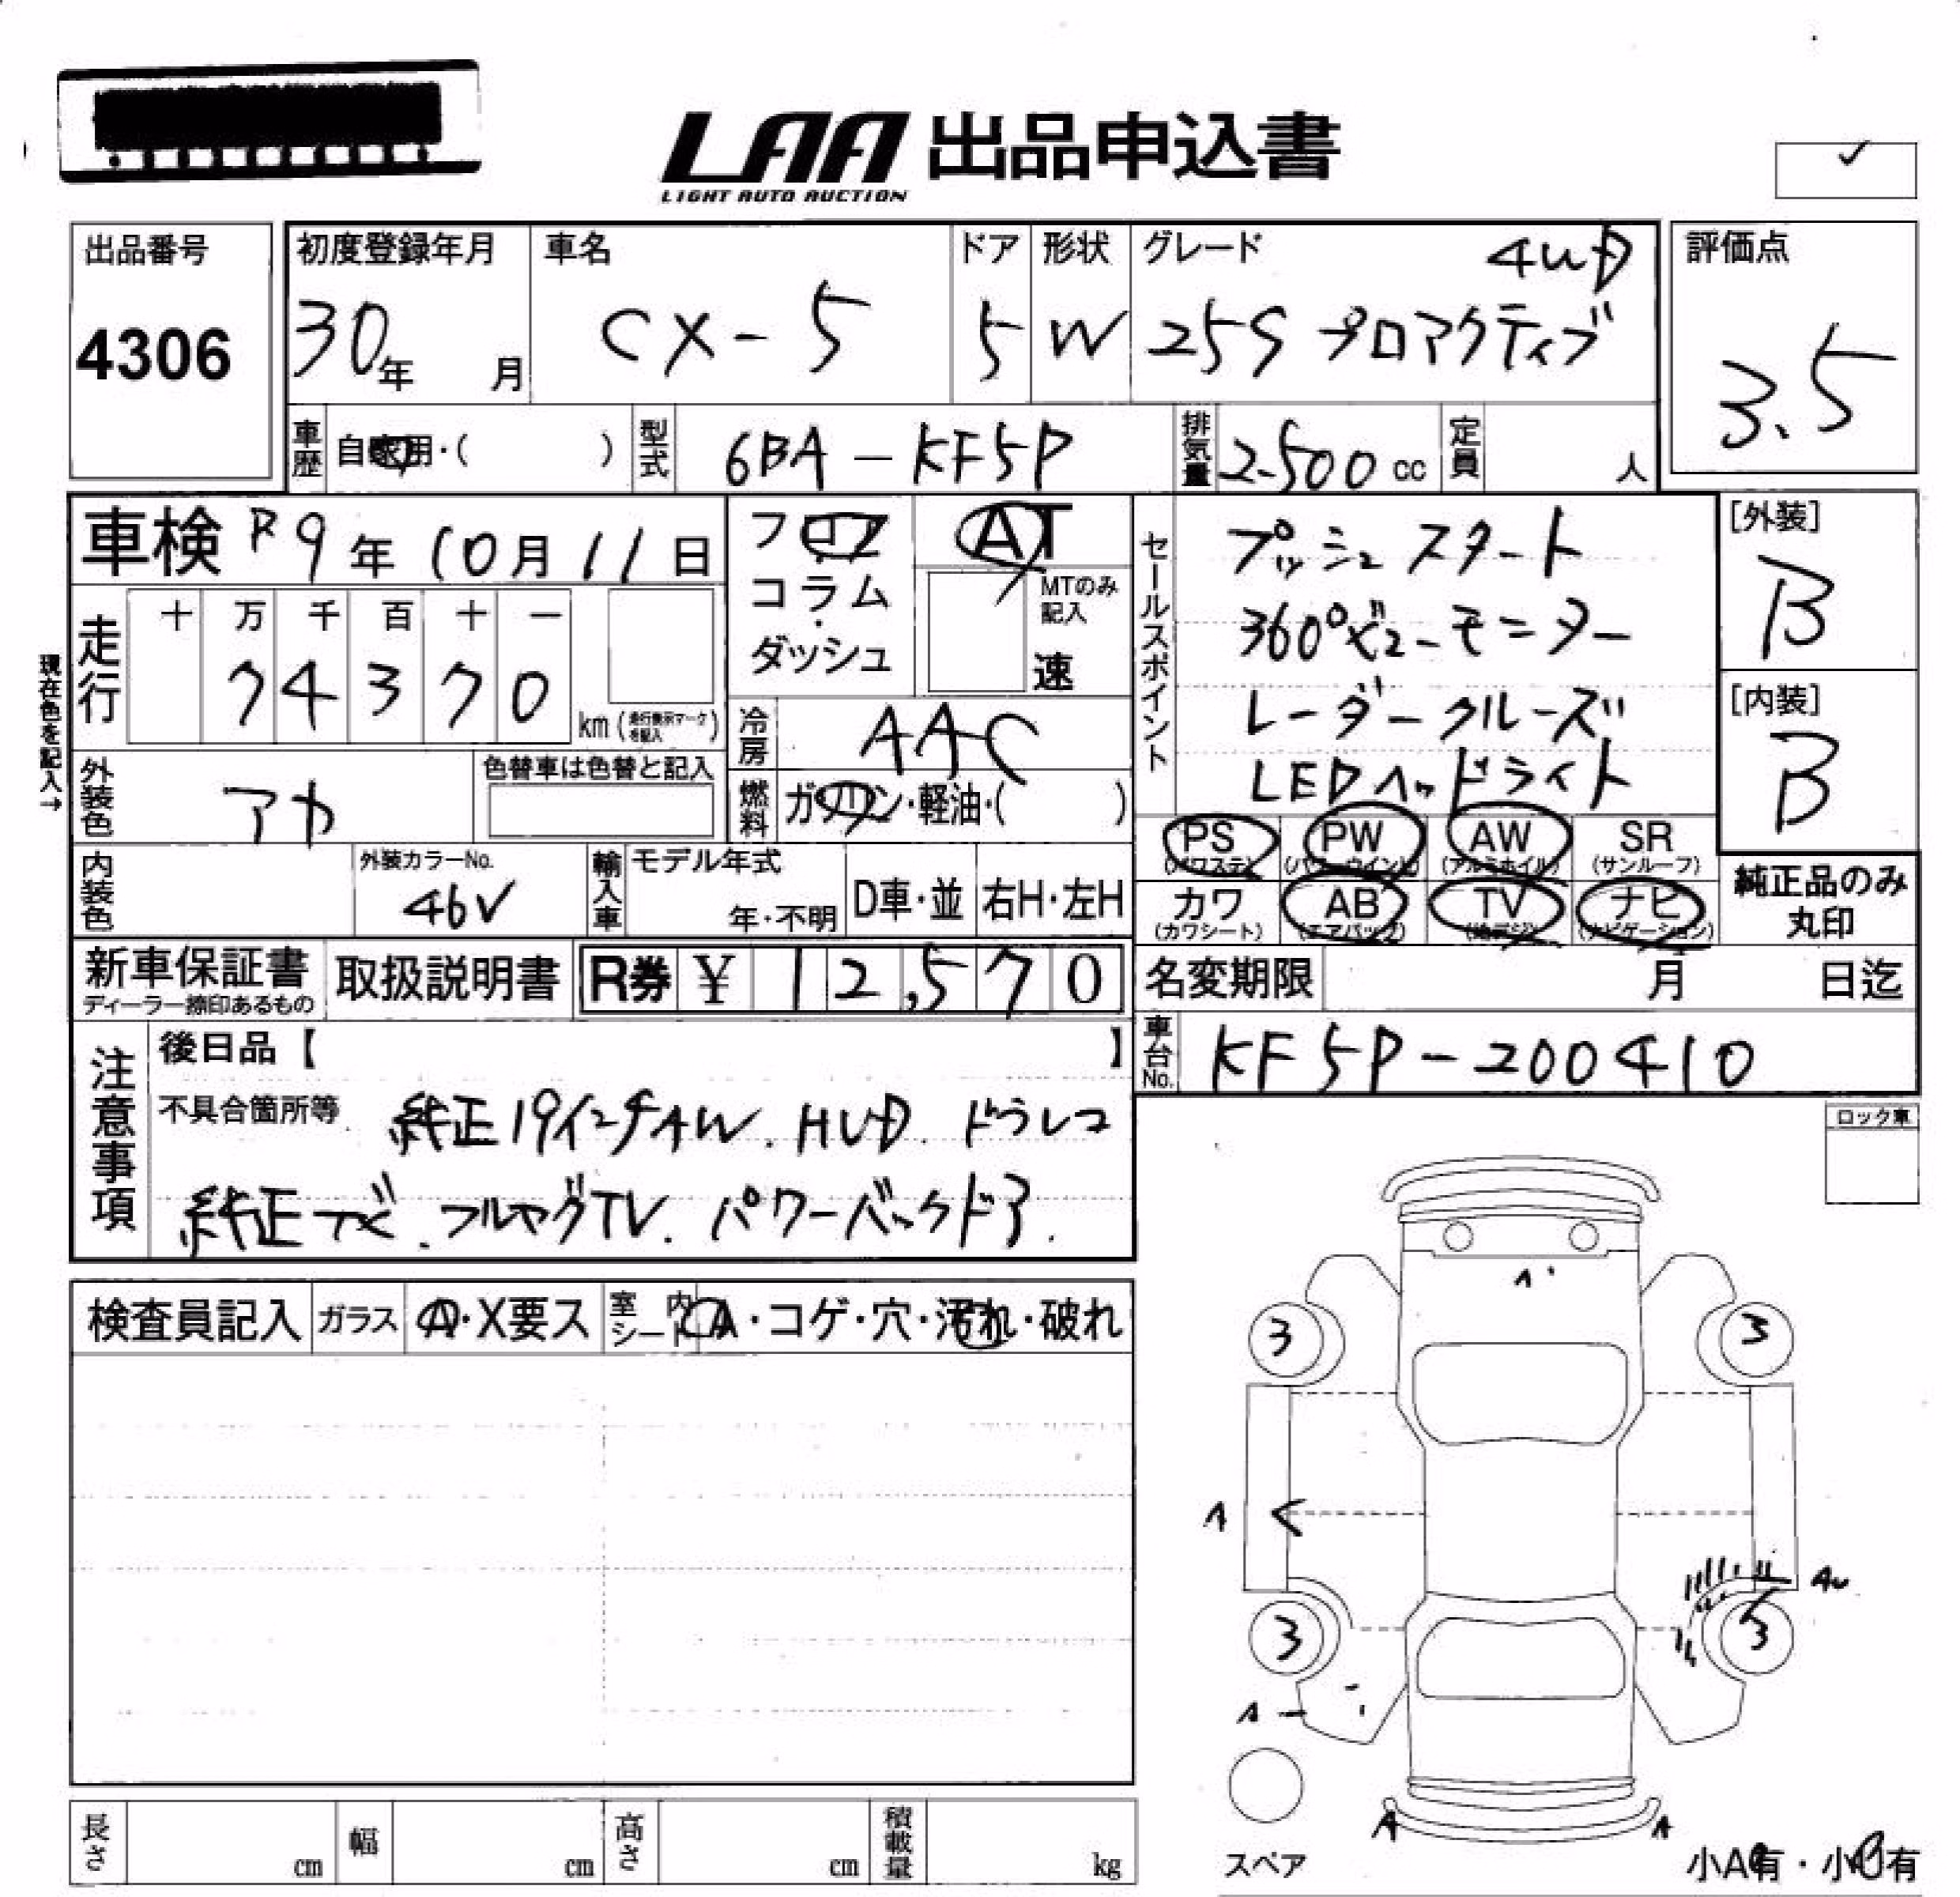 LAA 出品申込書
LIGHT AUTO AUCTION
✓
出品番号
4306
初度登録年月
30年 月
車名
CX-5
ドア
5
形状
W
グレード 4WD
25S プロアクティブ
評価点
3.5
車歴 自家用・( )
型式 6BA-KF5P
排気量 2500 cc
定員 人
車検 R9年10月11日
フロア・コラム・ダッシュ
AT
MTのみ記入
速
セールスポイント
プッシュスタート
360°ビューモニター
レーダークルーズ
LEDヘッドライト
[外装]
B
[内装]
B
現在色を記入→
走行
十 万 千 百 十 一
7 4 3 7 0
km (走行表示マークを記入)
冷房 AAC
燃料 ガソリン・軽油・( )
外装色 アカ
色替車は色替と記入
内装色
外装カラーNo.
46V
輸入車
モデル年式
年・不明
D車・並
右H・左H
PS (パワステ)
PW (パワーウインド)
AW (アルミホイル)
SR (サンルーフ)
カワ (カワシート)
AB (エアバック)
TV (地デジ)
ナビ (ナビゲーション)
純正品のみ丸印
新車保証書
ディーラー捺印あるもの
取扱説明書
R券 ¥ 12,570
名変期限 月 日迄
車台No. KF5P-200410
注意事項
後日品【 】
不具合箇所等 純正19インチAW. HUD. ドラレコ
純正ナビ. フルセグTV. パワーバックドア.
ロック車
検査員記入
ガラス A・X要ス
室内シート A・コゲ・穴・汚れ・破れ
3 3
3 3
A
A
スペア
小A有・小U有
長さ cm
幅 cm
高さ cm
積載量 kg